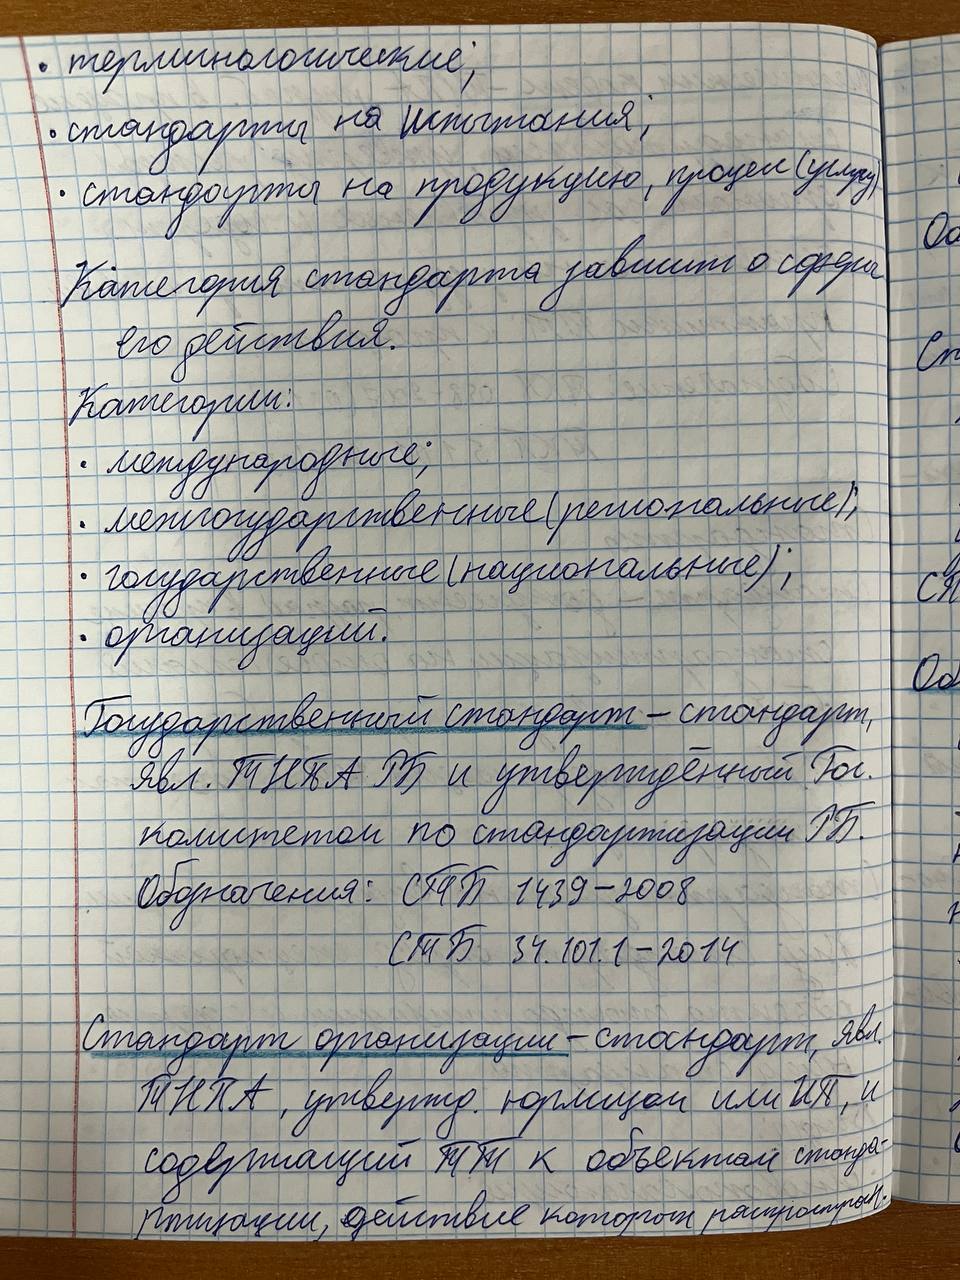 • терминологические;
• стандарты на испытания;
• стандарты на продукцию, процесс (услугу)
Категория стандарта зависит о сферы
его действия.
Категории:
• международные;
• межгосударственные (региональные);
• государственные (национальные);
• организаций.
Государственный стандарт – стандарт,
явл. ТНПА РБ и утверждённый Гос.
комитетом по стандартизации РБ.
Обозначения: СТБ 1439–2008
СТБ 34.101.1–2014
Стандарт организации – стандарт, явл.
ТНПА, утвержд. юрлицом или ИП, и
содержащий ТТ к объектам станда-
ртизации, действие которых распростран-
Об
Ст
СТ
Об